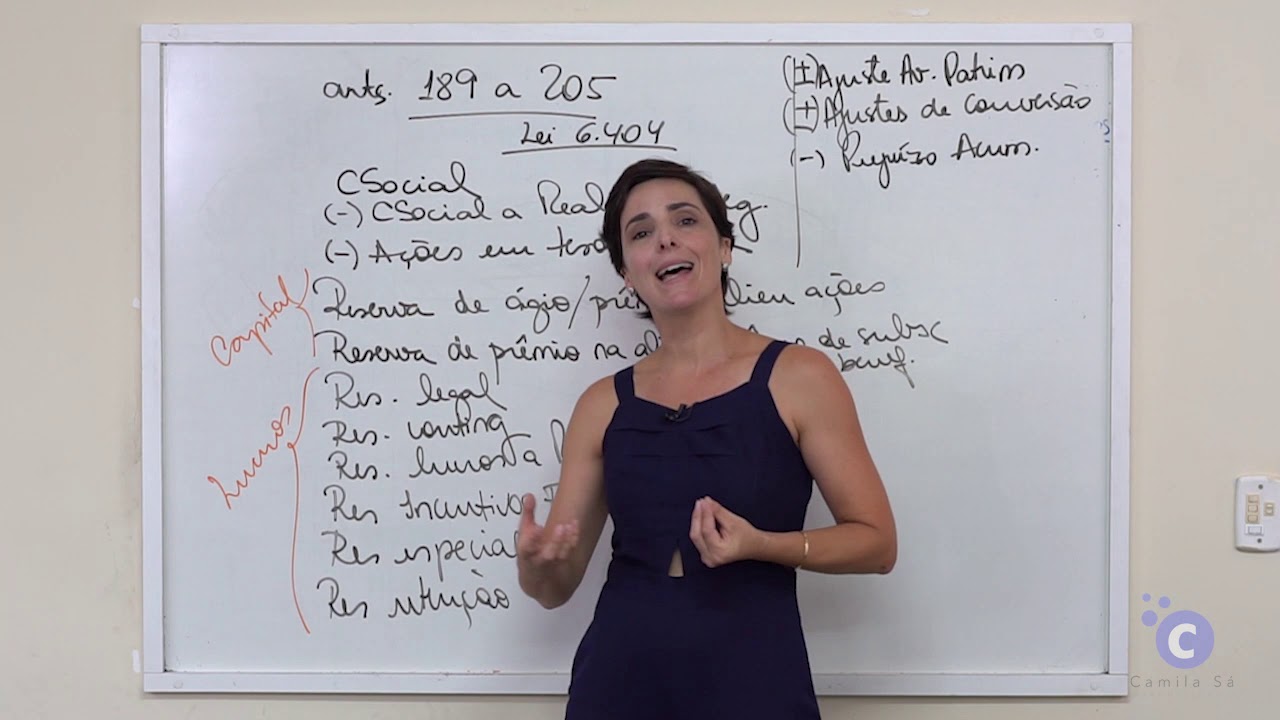 arts. 189 a 205
Lei 6.404
CSocial
(-) CSocial a Real eg.
(-) Ações em teso
Reserva de ágio/prê alien ações
Reserva de prêmio na ali de subsc
benef.
Res. legal
Res. conting
Res. lucros a
Res Incentivo
Res especial
Res retenção
Capital
Lucros
(±) Ajuste Av. Patrim
(±) Ajustes de Conversão
(-) Prejuízo Acum.
C
Camila Sá